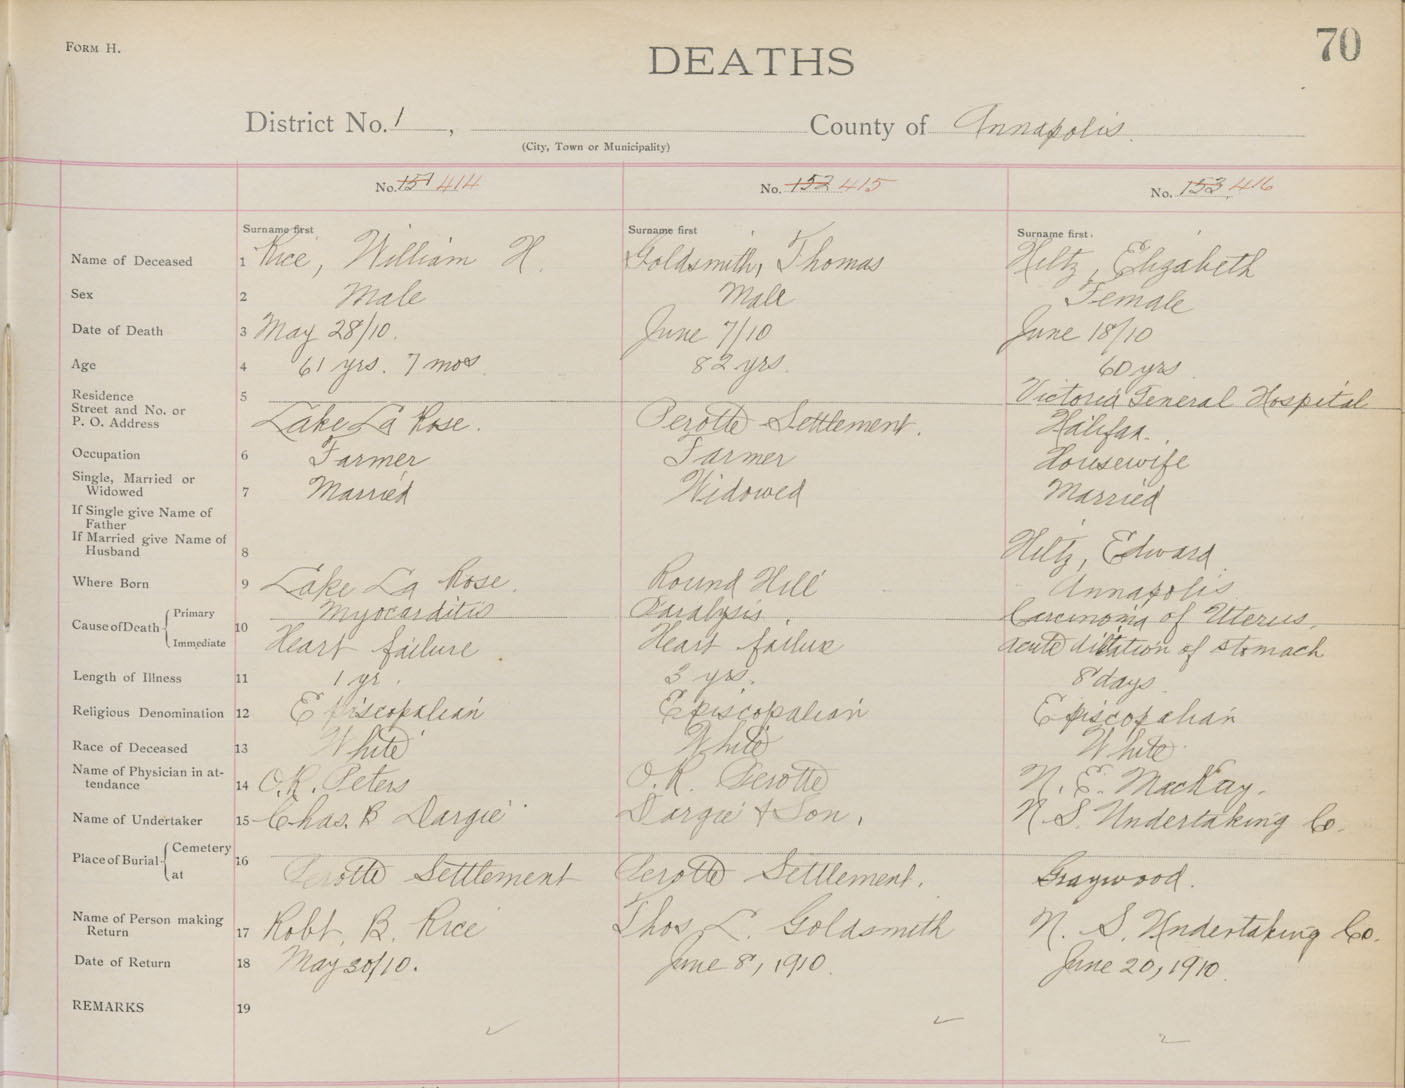 FORM H.
70
DEATHS
District No. 1, County of Annapolis.
(City, Town or Municipality)
No. 151 414 No. 152 415 No. 153 416
Surname first Surname first Surname first.
Name of Deceased 1 Rice, William H. Goldsmith, Thomas Hiltz, Elizabeth
Sex 2 Male Male Female
Date of Death 3 May 28/10. June 7/10 June 18/10
Age 4 61 yrs. 7 mos. 82 yrs. 60 yrs
Residence 5 Victoria General Hospital
Street and No. or
P. O. Address Lake La Rose. Perotte Settlement. Halifax.
Occupation 6 Farmer Farmer Housewife
Single, Married or
Widowed 7 Married Widowed Married
If Single give Name of
Father
If Married give Name of
Husband 8 Hiltz, Edward
Where Born 9 Lake La Rose. Round Hill Annapolis
Cause of Death Primary Myocarditis Paralysis. Carcinoma of Uterus,
10 Immediate Heart failure Heart failure acute dilitation of stomach
Length of Illness 11 1 yr. 3 yrs. 8 days.
Religious Denomination 12 Episcopalian Episcopalian Episcopalian
Race of Deceased 13 White White White
Name of Physician in at-
tendance 14 O.R. Peters O.R. Perotte N. E. MacKay.
Name of Undertaker 15 Chas. B Dargie Dargie & Son. N. S. Undertaking Co.
Place of Burial Cemetery 16
at Perotte Settlement Perotte Settlement. Graywood.
Name of Person making
Return 17 Robt. B. Rice Thos. L. Goldsmith N. S. Undertaking Co.
Date of Return 18 May 30/10. June 8, 1910. June 20, 1910
REMARKS 19